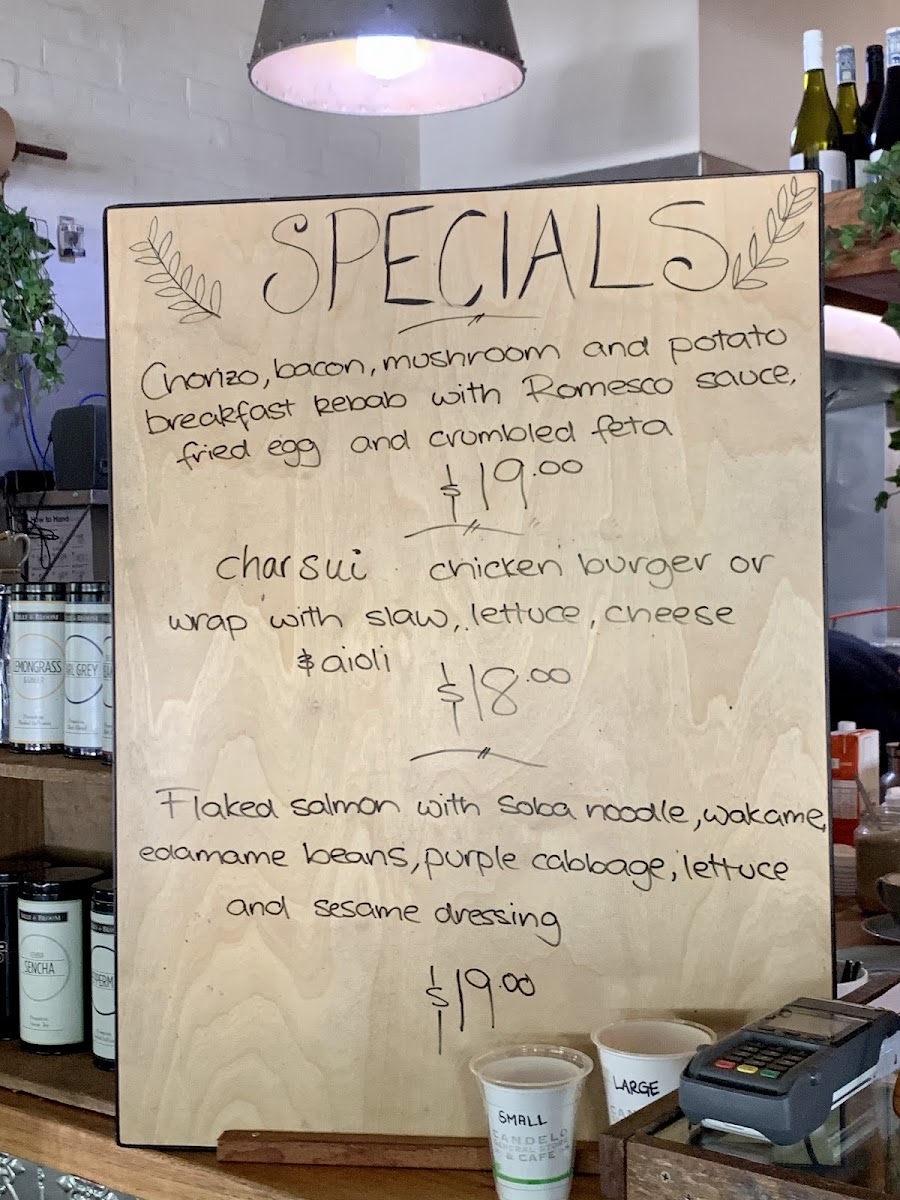 SPECIALS
Chorizo, bacon, mushroom and potato
breakfast kebab with Romesco sauce,
fried egg and crumbled feta
$19.00
char sui chicken burger or
wrap with slaw, lettuce, cheese
& aioli
$18.00
Flaked salmon with soba noodle, wakame,
edamame beans, purple cabbage, lettuce
and sesame dressing
$19.00
How to Hand
LEMONGRASS
& GINGER
RL GREY
SENCHA
PERM
SMALL
CANDELO
GENERAL STORE
& CAFE
LARGE
CAN